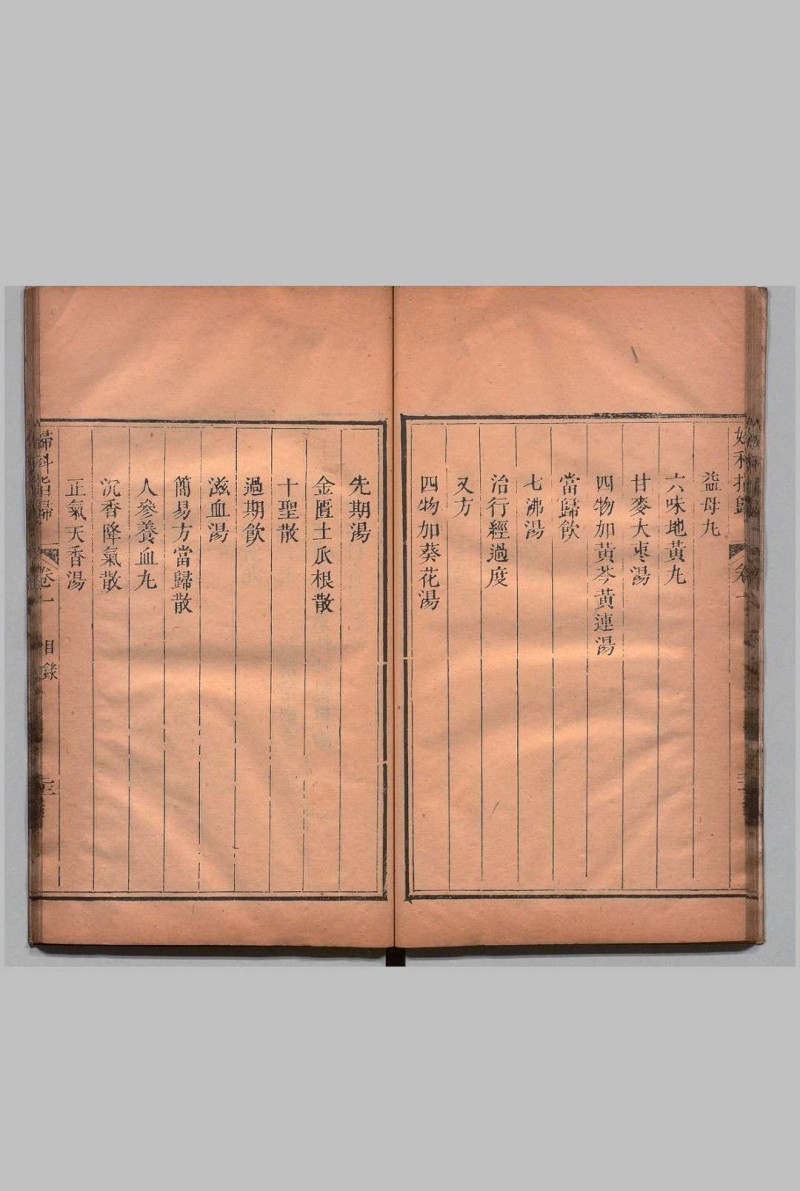 婦科指歸
卷一
益母丸
六味地黃丸
甘麥大棗湯
四物加黃芩黃連湯
當歸飲
七沸湯
治行經過度
又方
四物加葵花湯
先期湯
金匱土瓜根散
十聖散
過期飲
滋血湯
簡易方當歸散
人參養血丸
沉香降氣散
正氣天香湯
婦科指歸
卷一
目錄
三